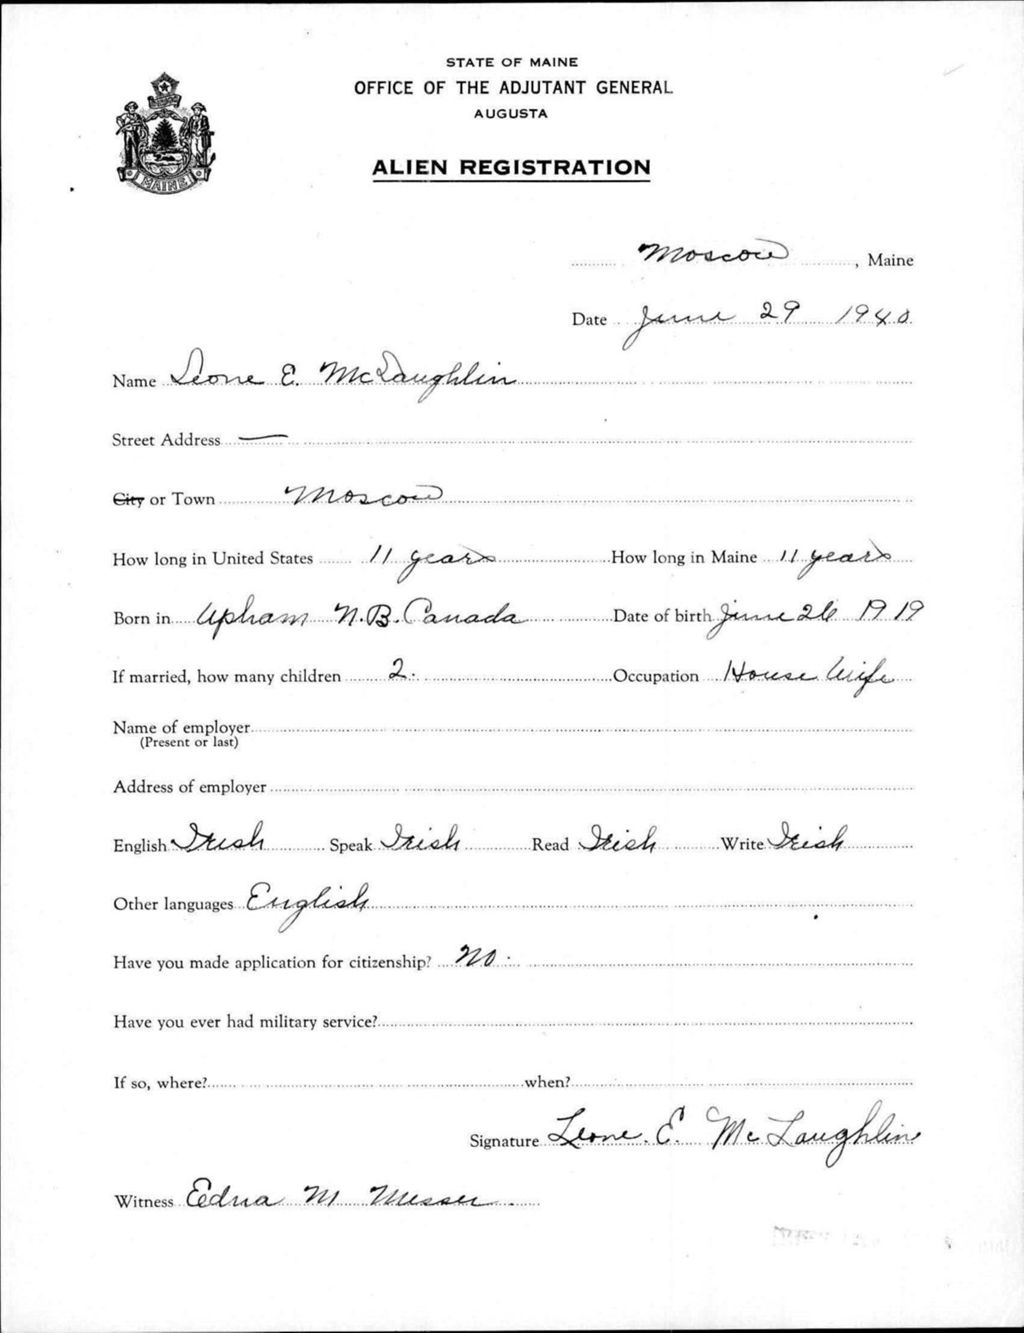 STATE OF MAINE
OFFICE OF THE ADJUTANT GENERAL
AUGUSTA
ALIEN REGISTRATION
MAINE
Moscow, Maine
Date June 29 1940
Name Leone E. McLaughlin
Street Address —
City or Town Moscow
How long in United States 11 years How long in Maine 11 years
Born in Upham N.B. Canada Date of birth June 26 1919
If married, how many children 2. Occupation House Wife
Name of employer
(Present or last)
Address of employer
English Irish Speak Irish Read Irish Write Irish
Other languages English
Have you made application for citizenship? No.
Have you ever had military service?
If so, where? when?
Signature Leone. E. McLaughlin
Witness Edna M Messer